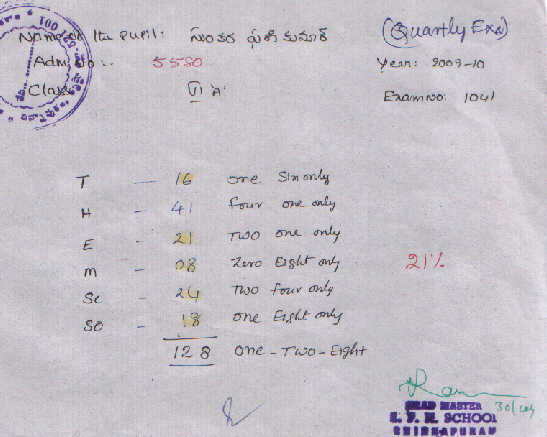 Name of the Pupil: సుంకర ప్రశాంత్ కుమార్ (Quartly Exa)
Adm. No:- 5580 Year: 2009-10
Class VI A Exam No: 1041
T - 16 one Six only
H - 41 four one only
E - 21 Two one only
m - 08 Zero Eight only 21%
Sc - 24 Two four only
SO - 18 one Eight only
128 one - Two - Eight
HEAD MASTER
SCHOOL